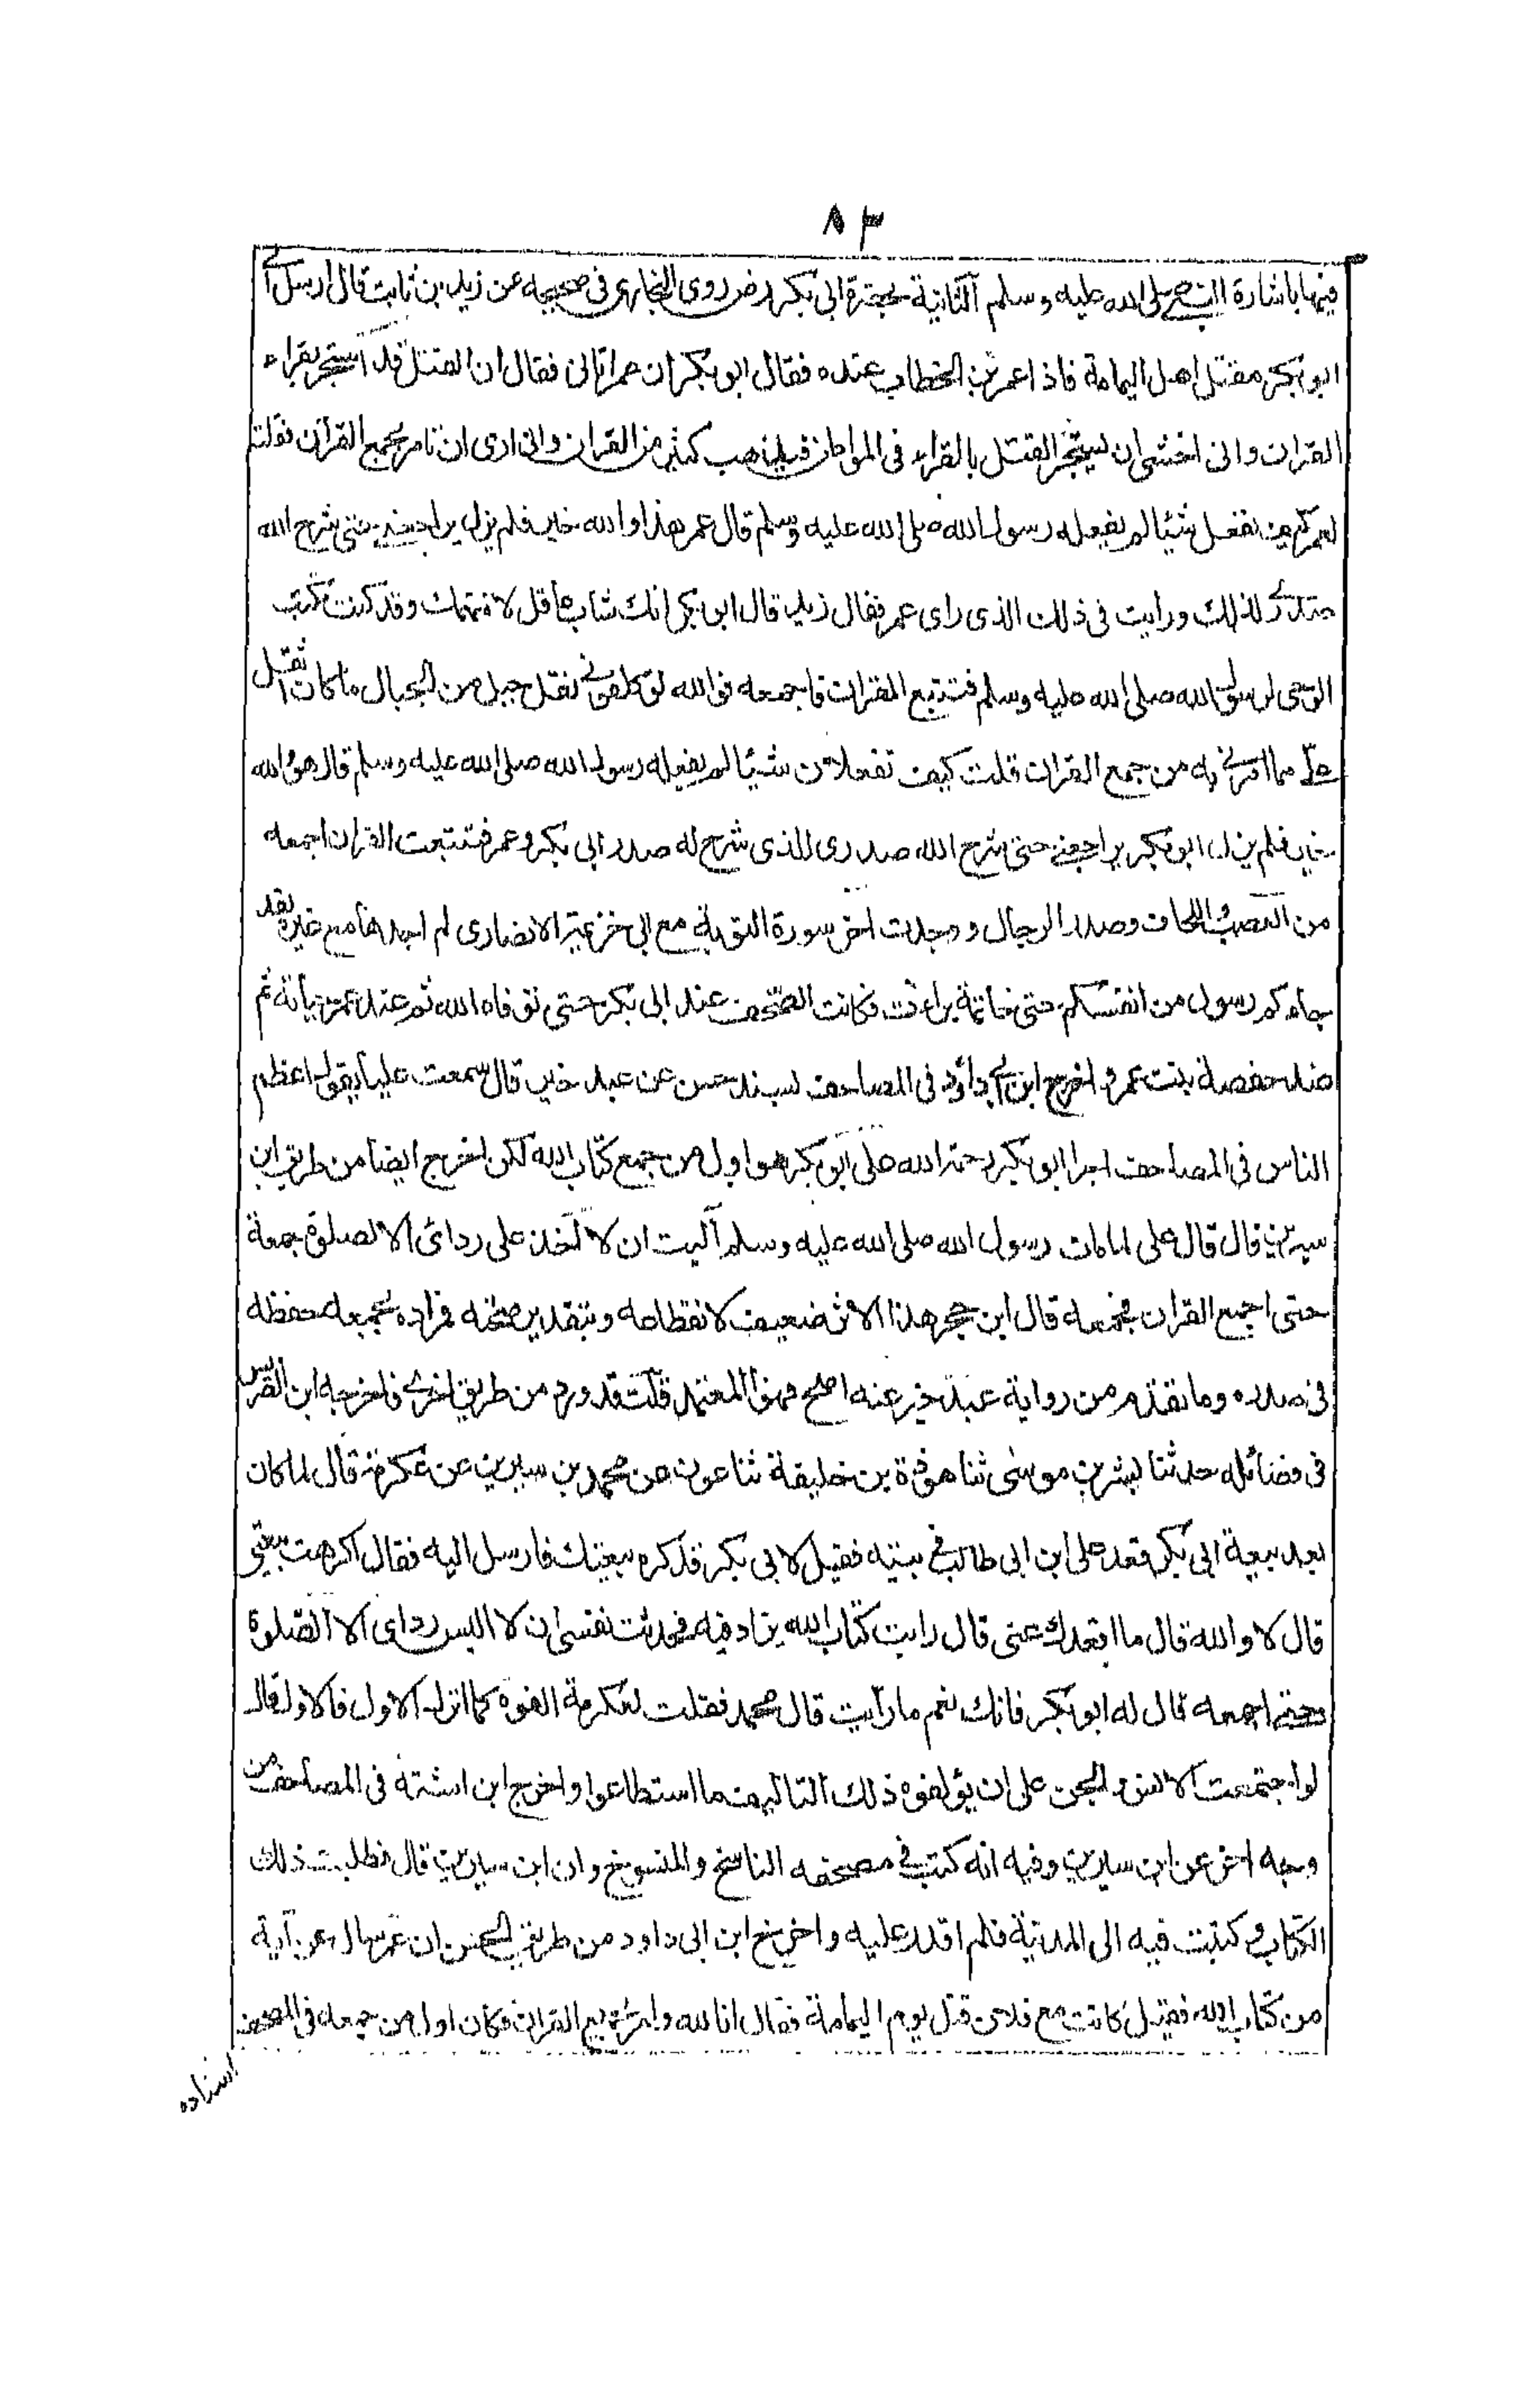 ٨٣
فيها باشارة النبي صلى الله عليه وسلم الثانية بحضرة ابي بكر رض روى البخاري في صحيحه عن زيد بن ثابت قال ارسل الى
ابو بكر مقتل اهل اليمامة فاذا عمر بن الخطاب عنده فقال ابو بكر ان عمر اتاني فقال ان القتل قد استحر بقراء
القران واني اخشى ان يستحر القتل بالقراء في المواطن فيذهب كثير من القران واني ارى ان تامر بجمع القران فقلت
لعمر كيف نفعل شيئا لم يفعله رسول الله صلى الله عليه وسلم قال عمر هذا والله خير فلم يزل يراجعني حتى شرح الله
صدري لذلك ورايت في ذلك الذي راى عمر فقال زيد قال ابو بكر انك شاب عاقل لا نتهمك وقد كنت تكتب
الوحى لرسول الله صلى الله عليه وسلم فتتبع القران فاجمعه فوالله لو كلفوني نقل جبل من الجبال ما كان اثقل
على مما امرني به من جمع القران قلت كيف تفعلان شيئا لم يفعله رسول الله صلى الله عليه وسلم قال هو الله
خير فلم يزل ابو بكر يراجعني حتى شرح الله صدري للذي شرح له صدر ابي بكر وعمر فتتبعت القران اجمعه
من العصب واللخاف وصدر الرجال ووجدت اخر سورة التوبة مع ابي خزيمة الانصاري لم اجدها مع غيره لقد
جاءكم رسول من انفسكم حتى خاتمة براءة فكانت الصحف عند ابي بكر حتى توفاه الله ثم عند عمر حياته ثم
عند حفصة بنت عمر واخرج ابن ابي داؤد في المصاحف بسند حسن عن عبد خير قال سمعت عليا يقول اعظم
الناس في المصاحف اجرا ابو بكر رحمة الله على ابو بكر هو اول من جمع كتاب الله لكن اخرج ايضا من طريق ابن
سيرين قال قال على لما مات رسول الله صلى الله عليه وسلم آليت ان لا آخذ على ردائى الا لصلوة جمعة
حتى اجمع القران فجمعه قال ابن حجر هذا الاثر ضعيف لانقطاعه وبتقدير صحته فمراده بجمعه حفظه
في صدره وما تقدم من رواية عبد خير عنه اصح فهو المعتمد قلت قد ورد من طريق اخرى فاخرجه ابن الضريس
في فضائله حدثنا بشر بن موسى ثنا هوذة بن خليفة ثنا عون عن محمد بن سيرين عن عكرمة قال لما كان
بعد بيعة ابي بكر قعد على ابن ابي طالب في بيته فقيل لابي بكر قد كره بيعتك فارسل اليه فقال اكرهت بيعتي
قال لا والله قال ما اقعدك عنى قال رايت كتاب الله يزاد فيه فحدثت نفسي ان لا البس رداى الا الصلوة
حتى اجمعه قال له ابو بكر فانك نعم ما رأيت قال محمد فقلت لعكرمة الفوه كما انزل الاول فالاول قال
لو اجتمعت الانس والجن على ان يؤلفوه ذلك التاليف ما استطاعوا واخرج ابن اشته في المصاحف من
وجه اخر عن ابن سيرين وفيه انه كتب في مصحفه الناسخ والمنسوخ وان ابن سيرين قال فطلبت ذلك
الكتاب وكتبت فيه الى المدينة فلم اقدر عليه واخرج ابن ابي داود من طريق الحسن ان عمر سال عن آية
من كتاب الله فقيل كانت مع فلان قتل يوم اليمامة فقال انا لله وامر بجمع القران فكان اول من جمعه في المصحف
اسناده